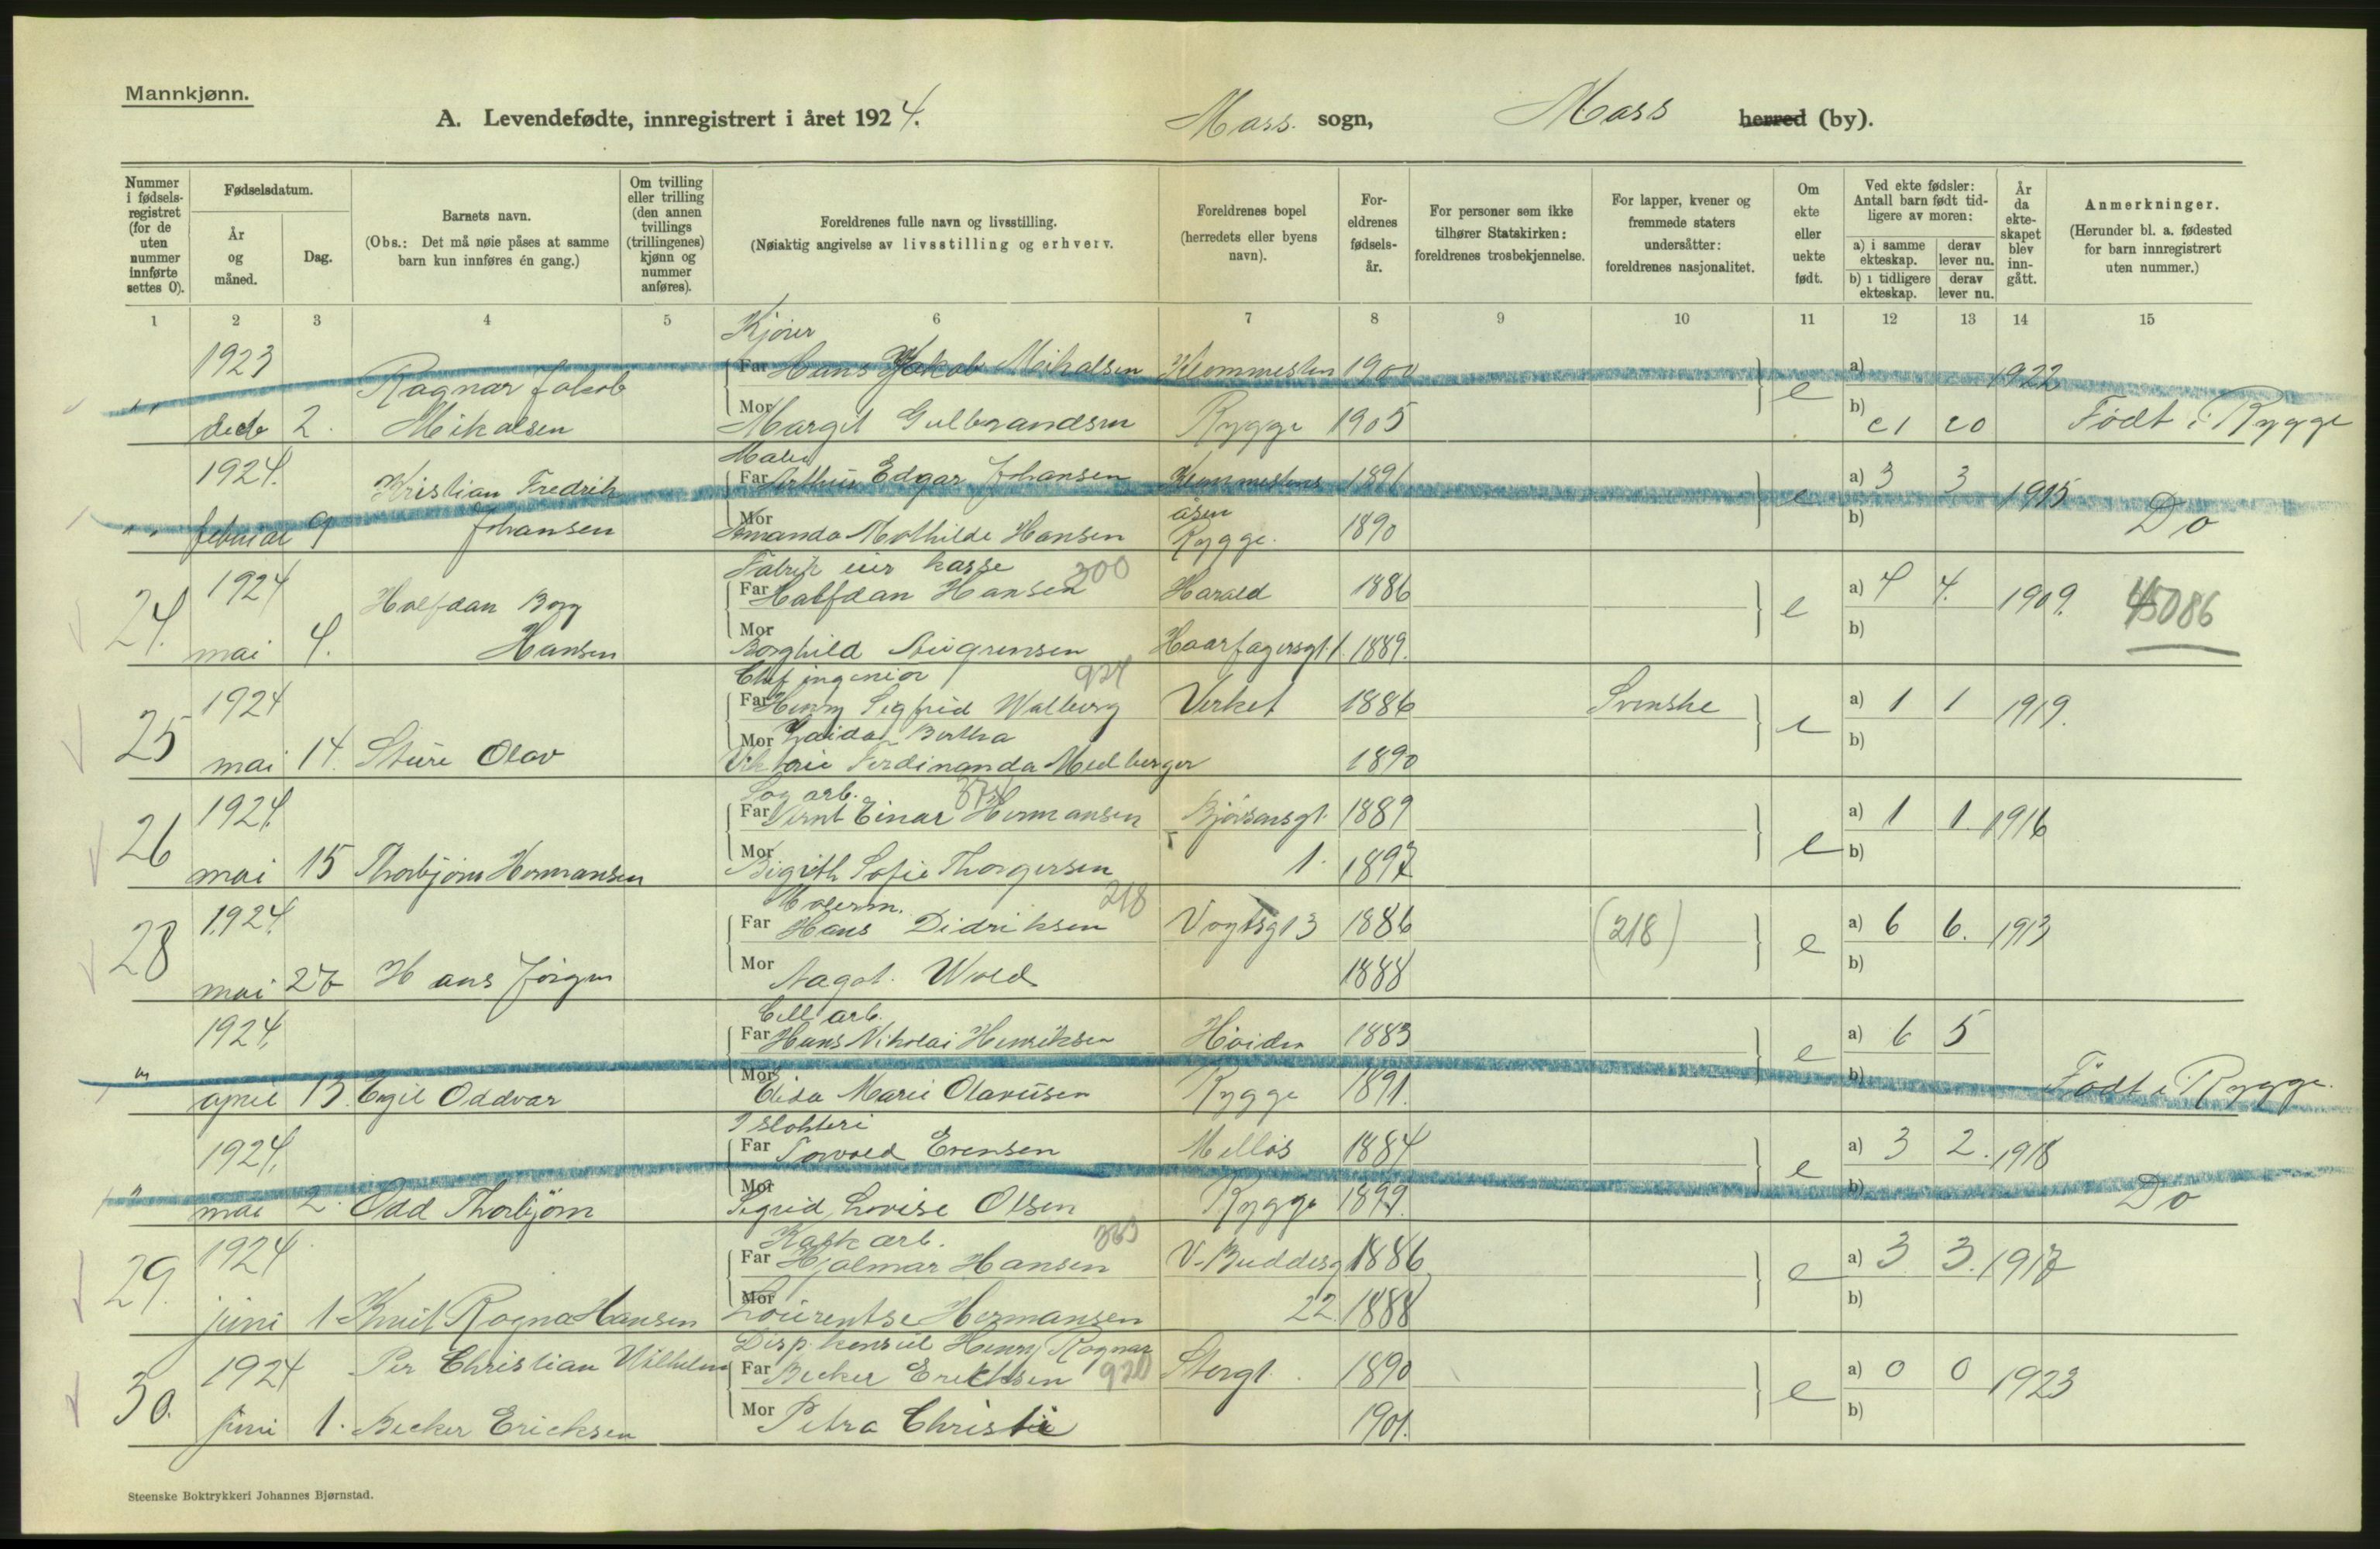 Mannkjønn.
A. Levendefødte, innregistrert i året 1924. Moss sogn, Moss herred (by).
Nummer i fødselsregistret (for de uten nummer innførte settes 0).
Fødselsdatum.
År og måned.
Dag.
Barnets navn.
(Obs.: Det må nøie påses at samme barn kun innføres én gang.)
Om tvilling eller trilling (den annen tvillings (trillingenes) kjønn og nummer anføres).
Foreldrenes fulle navn og livsstilling.
(Nøiaktig angivelse av livsstilling og erhverv.
Foreldrenes bopel (herredets eller byens navn).
Foreldrenes fødselsår.
For personer som ikke tilhører Statskirken: foreldrenes trosbekjennelse.
For lapper, kvener og fremmede staters undersåtter: foreldrenes nasjonalitet.
Om ekte eller uekte født.
Ved ekte fødsler: Antall barn født tidligere av moren:
a) i samme ekteskap. derav lever nu.
b) i tidligere ekteskap. derav lever nu.
År da ekteskapet blev inngått.
Anmerkninger.
(Herunder bl. a. fødested for barn innregistrert uten nummer.)
1 2 3 4 5 6 7 8 9 10 11 12 13 14 15
Kjører
1923 Ragnar Jakob Far Hans Jakob Mikalsen 1900 e a) 1922
" desb 2. Mikalsen Mor Margit Gulbrandsen Rygge 1905 b) Født i Rygge
Maler
1924. Kristian Fredrik Far Arthur Edgar Johansen 1891 e a) 3 3 1915
" februar 9 Johansen Mor Amanda Mathilde Hansen åsen Rygge. 1890 b) Do
Fabrik kasse 300
24. 1924 Halfdan Borg Far Halfdan Hansen Harald 1886 e a) 4 4. 1909. 45086
mai 4. Hansen Mor Borghild Haarfagersgt. 1 1889. b)
Chefingeniør 924
25 1924 Far Henry Sigfrid Walberg Verket 1886 Svenske e a) 1 1 1919.
mai 14. Sture Olav Mor Bertha
Ferdinanda 1890 b)
Sag arb.
26 1924. Far Arnt Einar Hermansen 1889 e a) 1 1. 1916
mai 15 Thorbjørn Hermansen Mor Sofie Thorgersen 1. 1897 b)
218
28 1924. Far Hans Didriksen Vogtsgt 3 1886 (218) e a) 6 6. 1913
mai Hans Jørgen Mor Aagot Wold 1888 b)
Cell. arb.
1924. Far Hans Nikolai Henriksen Høiden 1883 e a) 6 5
" april 13. Egil Oddvar Mor Elida Marie Olavesen Rygge 1891. b) Født i Rygge.
1924. Far Torvald Evensen Melløs 1884 e a) 3 2. 1918
" mai 2. Odd Thorbjørn Mor Sigrid Lovise Olsen Rygge b) Do
arb. 363
29. 1924. Far Hjalmar Hansen V. Buddesg 1886 e a) 3 3. 1917
juni 1. Knut Ragnar Hansen Mor Lourentse Hermansen 22. 1888 b)
Disp. konsul Henry Ragnar
30. 1924 Per Christian Wilhelm Far Becker Ericksen 920 Storgt. 1890 e a) 0 0 1923
juni 1. Becker Ericksen Mor Petra Christie 1901. b)
Steenske Boktrykkeri Johannes Bjørnstad.